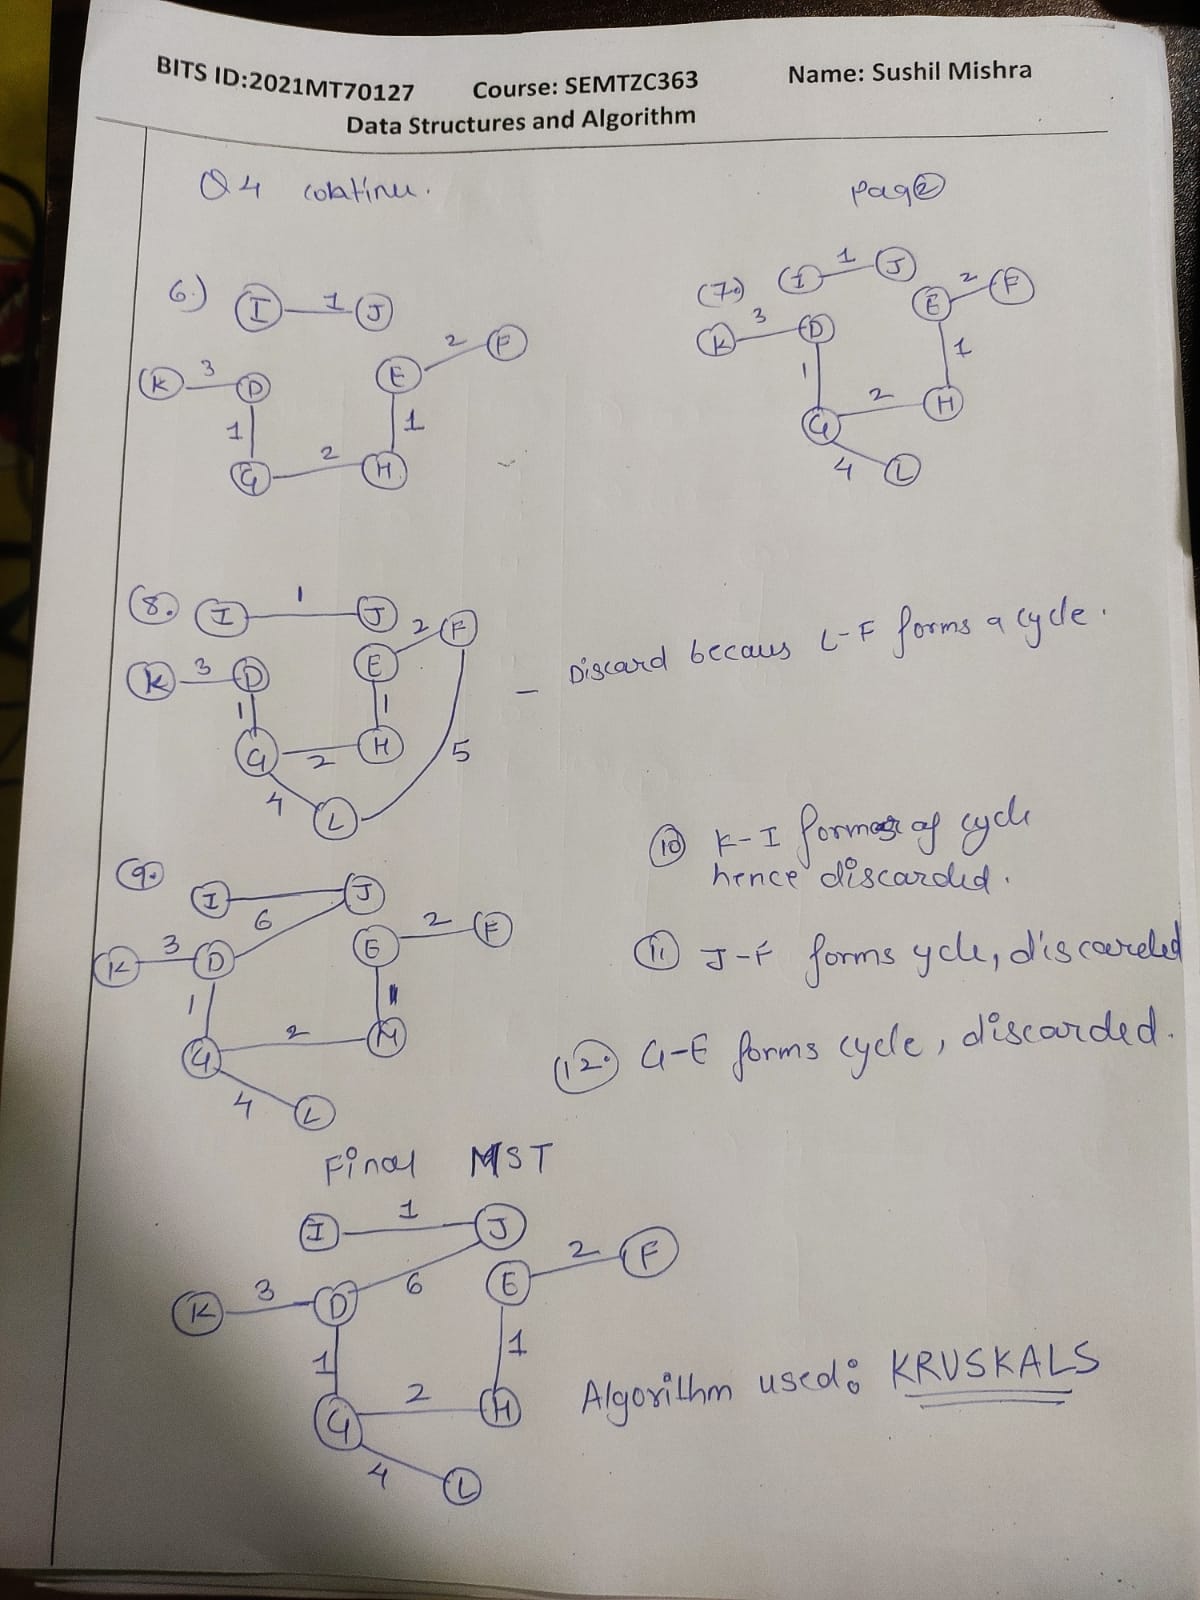 BITS ID:2021MT70127 Course: SEMTZC363 Name: Sushil Mishra
Data Structures and Algorithm
Q4 continu. Page 2
6.)
I 1 J
K 3 D E 2 F
1 1
G 2 H
(7.)
I 1 J
K 3 D E 2 F
1 1
G 2 H
4 L
(8.)
I 1 J
K 3 D E 2 F
1 1
G 2 H 5
4 L
– Discard becaus L-F forms a cycle.
9.
I J
6
K 3 D E 2 F
1 1
G 2 H
4 L
10 K-I forms cycle
hence discarded.
11 J-F forms ycle, discarded
12. G-E forms cycle, discarded.
Final MST
I 1 J
K 3 D 6 E 2 F
1 1
G 2 H
4 L
Algorithm used: KRUSKALS